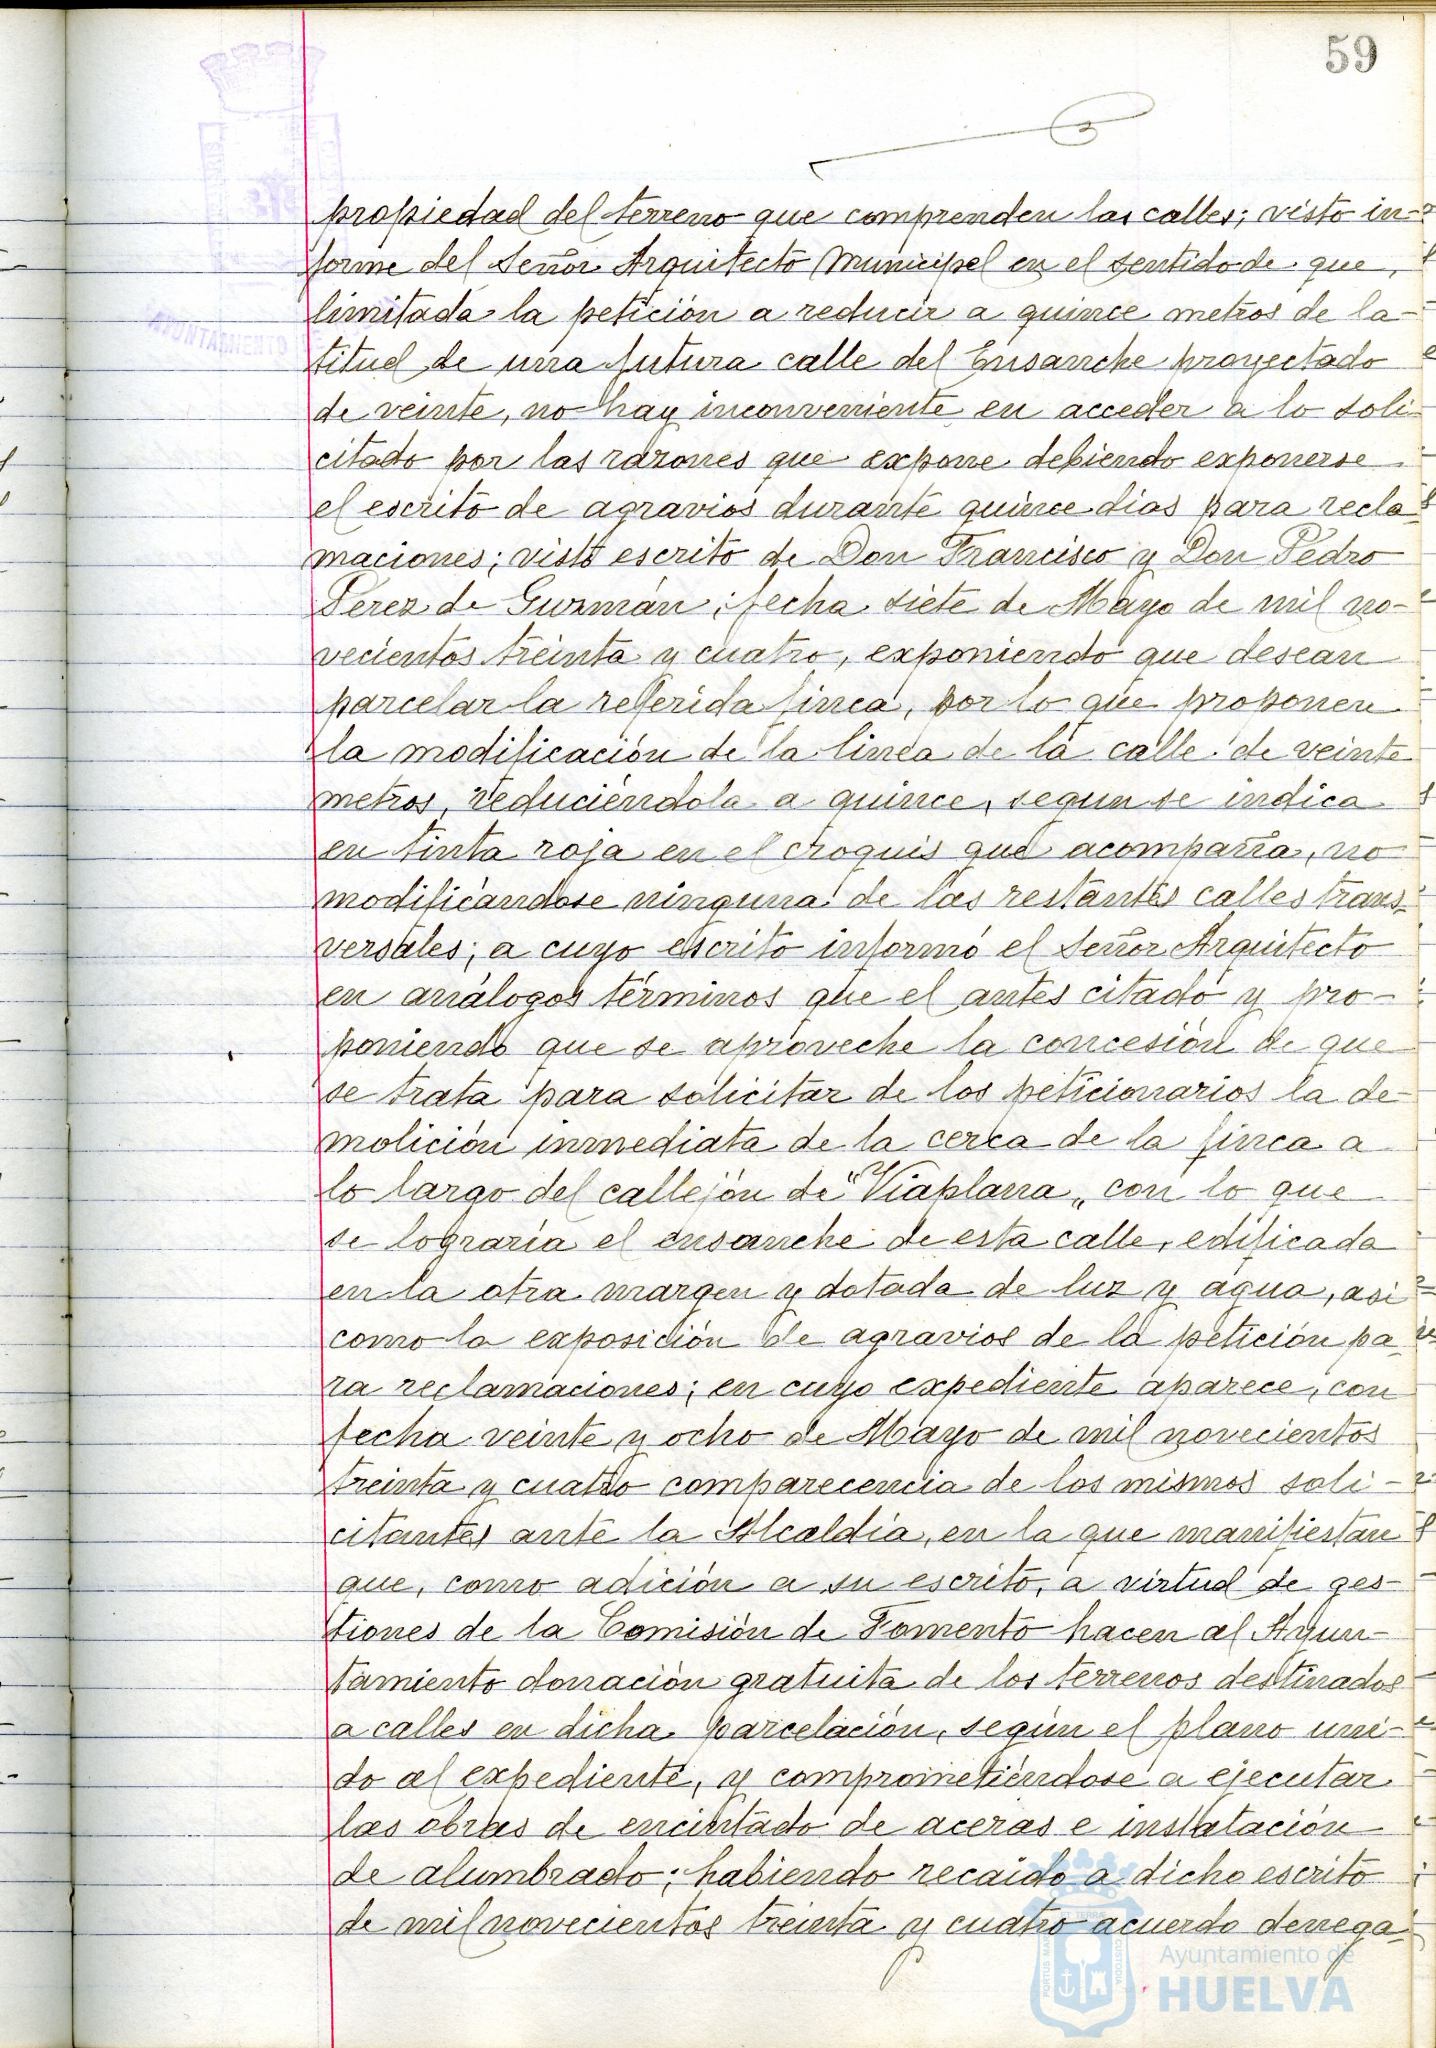 59
propiedad del terreno que comprenden las calles; visto in-
forme del Señor Arquitecto Municipal en el sentido de que,
limitada la petición a reducir a quince metros de la-
titud de una futura calle del Ensanche proyectado
de veinte, no hay inconveniente en acceder a lo soli-
citado por las razones que expone debiendo exponerse
el escrito de agravios durante quince dias para recla-
maciones; visto escrito de Don Francisco y Don Pedro
Perez de Guzmán, fecha siete de Mayo de mil no-
vecientos treinta y cuatro, exponiendo que desean
parcelar la referida finca, por lo que proponen
la modificación de la linea de la calle de veinte
metros, reduciéndola a quince, segun se indica
en tinta roja en el croquis que acompaña, no
modificándose ninguna de las restantes calles trans-
versales; a cuyo escrito informó el Señor Arquitecto
en análogos términos que el antes citado y pro-
poniendo que se aproveche la concesión de que
se trata para solicitar de los peticionarios la de-
molición inmediata de la cerca de la finca a
lo largo del callejón de "Viaplana" con lo que
se lograría el ensanche de esta calle, edificada
en la otra margen y dotada de luz y agua, asi
como la exposición de agravios de la petición pa-
ra reclamaciones; en cuyo expediente aparece, con
fecha veinte y ocho de Mayo de mil novecientos
treinta y cuatro comparecencia de los mismos soli-
citantes ante la Alcaldía, en la que manifiestan
que, como adición a su escrito, a virtud de ges-
tiones de la Comisión de Fomento hacen al Ayun-
tamiento donación gratuita de los terrenos destinados
a calles en dicha parcelación, según el plano uni-
do al expediente, y comprometiéndose a ejecutar
las obras de encintado de aceras e instalación
de alumbrado; habiendo recaído a dicho escrito
de mil novecientos treinta y cuatro acuerdo denega-
AYUNTAMIENTO
Ayuntamiento de
HUELVA